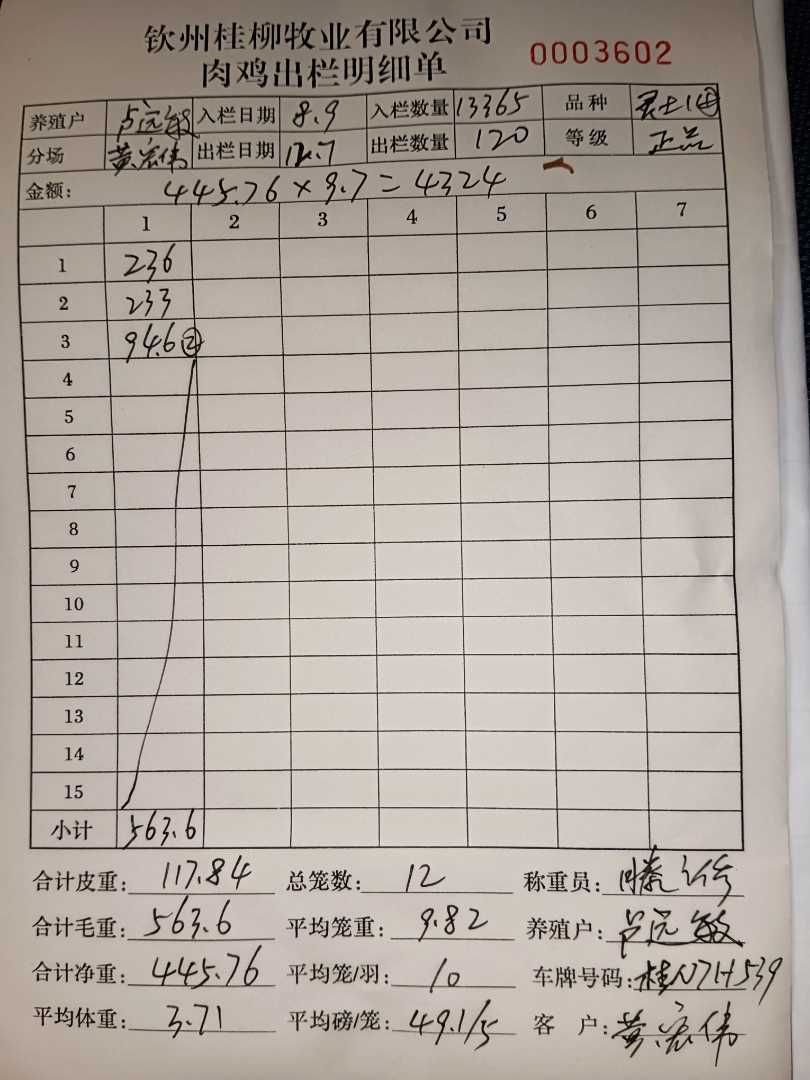 钦州桂柳牧业有限公司
肉鸡出栏明细单 0003602
养殖户 卢远敏 入栏日期 8.9 入栏数量 13365 品种
分场 黄宏伟 出栏日期 12.7 出栏数量 120 等级 正品
金额: 445.76×9.7=4324
1 2 3 4 5 6 7
1 236
2 233
3 94.6②
4
5
6
7
8
9
10
11
12
13
14
15
小计 563.6
合计皮重: 117.84 总笼数: 12 称重员:
合计毛重: 563.6 平均笼重: 9.82 养殖户: 卢远敏
合计净重: 445.76 平均笼/羽: 10 车牌号码: 桂N7H539
平均体重: 3.71 平均磅/笼: 49.1/5 客 户: 黄宏伟